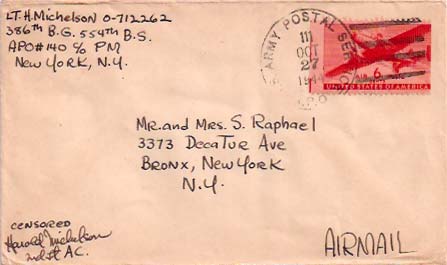 LT. H. Michelson O-712262
386th B.G. 554th B.S.
APO#140 % PM
New York, N.Y.
ARMY POSTAL SERVICE
OCT
27
1944
A.P.O.
6
UNITED STATES OF AMERICA
Mr. and Mrs. S. Raphael
3373 Decatur Ave
Bronx, New York
N.Y.
CENSORED
Harold Michelson
2nd Lt A.C.
AIRMAIL